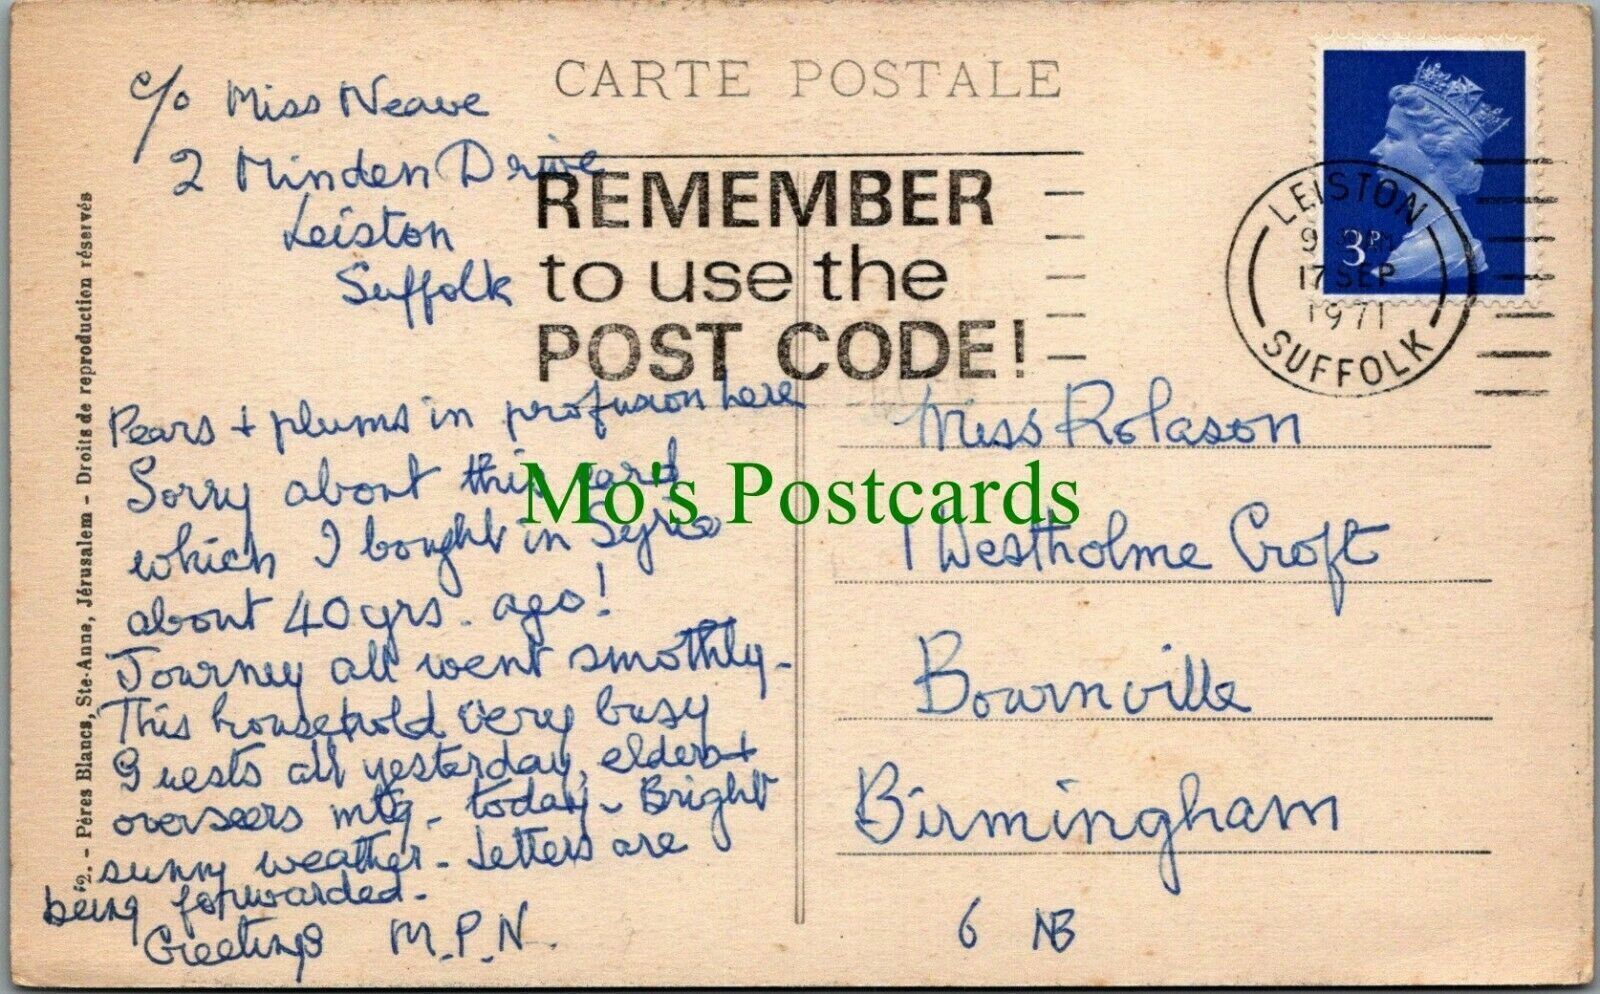 CARTE POSTALE
c/o Miss Neave
2 Minden Drive
Leiston
Suffolk
REMEMBER
to use the
POST CODE!
LEISTON
17 SEP
1971
SUFFOLK
3P
Pears + plums in profusion here
Sorry about this card
which I bought in Syria
about 40 yrs. ago!
Journey all went smothly -
This household very busy
Guests all yesterday, elders +
overseers mtg - today - Bright
sunny weather - Letters are
being forwarded -
Greetings M.P.N.
Miss Rolason
1 Westholme Croft
Bournville
Birmingham
6 NB
Mo's Postcards
. - Pères Blancs, Ste-Anne, Jérusalem - Droits de reproduction réservés